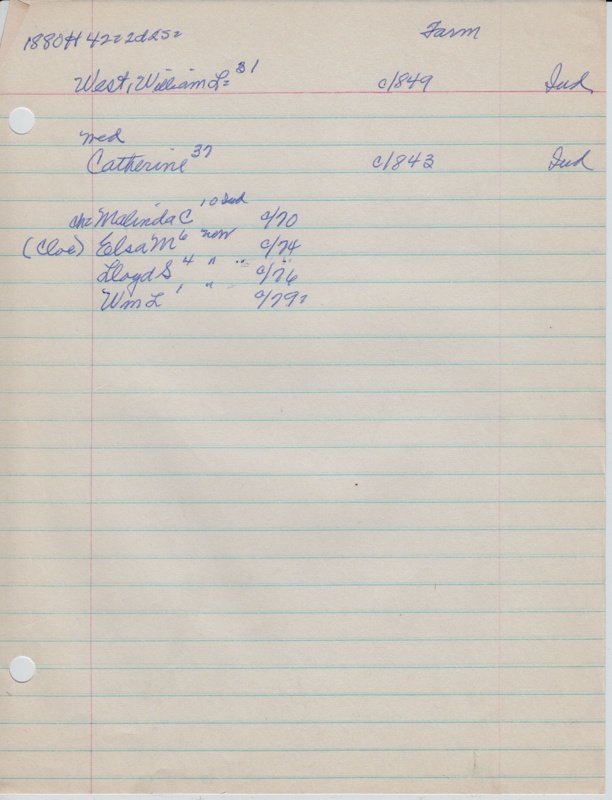 1880# 42=2d2S= Farm
West, William L= 31 c/849 Ind.
med
Catherine 37 c/843 Ind
ch= Malinda C 10 Ind c/70
(Cloe) Elsa M 6 now c/74
Lloyd S 4 " " c/76
Wm L 1 " c/79=